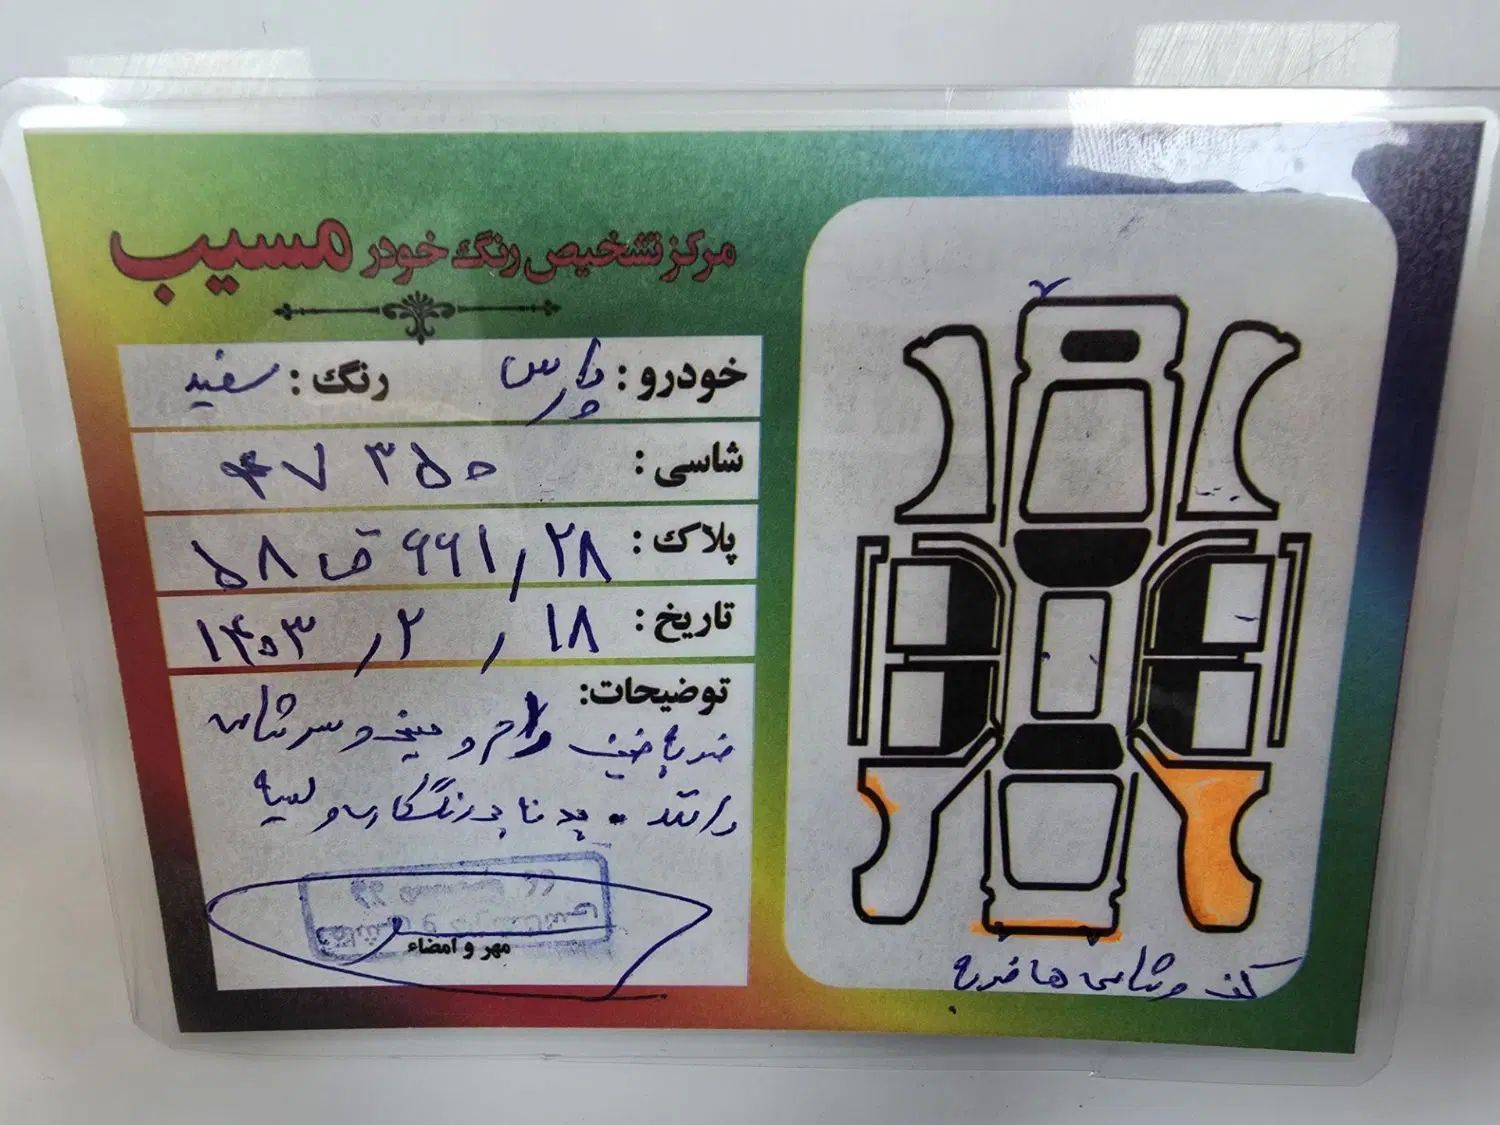 مرکز تشخیص رنگ خودر مسیب
خودرو : پارس رنگ : سفید
شاسی : ۴۷۳۵۰
پلاک : ۵۸ ق ۶۶۱ / ۲۸
تاریخ : ۱۴۰۳ / ۲ / ۱۸
توضیحات:
ضربه خفیف رام و سینی و سر شاسی
دارند . بدنه نا
مهر و امضاء
کف و شاسی ها ضربه